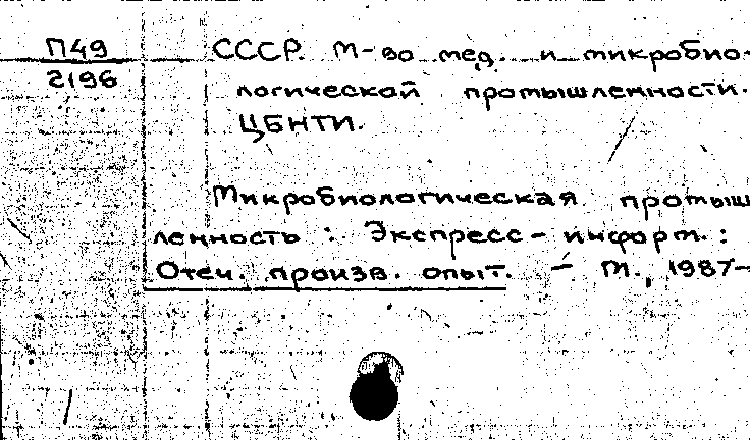 П49
2196
СССР. М-во мед. и микробио-
логической промышленности.
ЦБНТИ.
Микробиологическая промыш
ленность : Экспресс-информ. :
Отеч. произв. опыт. — М., 1987-